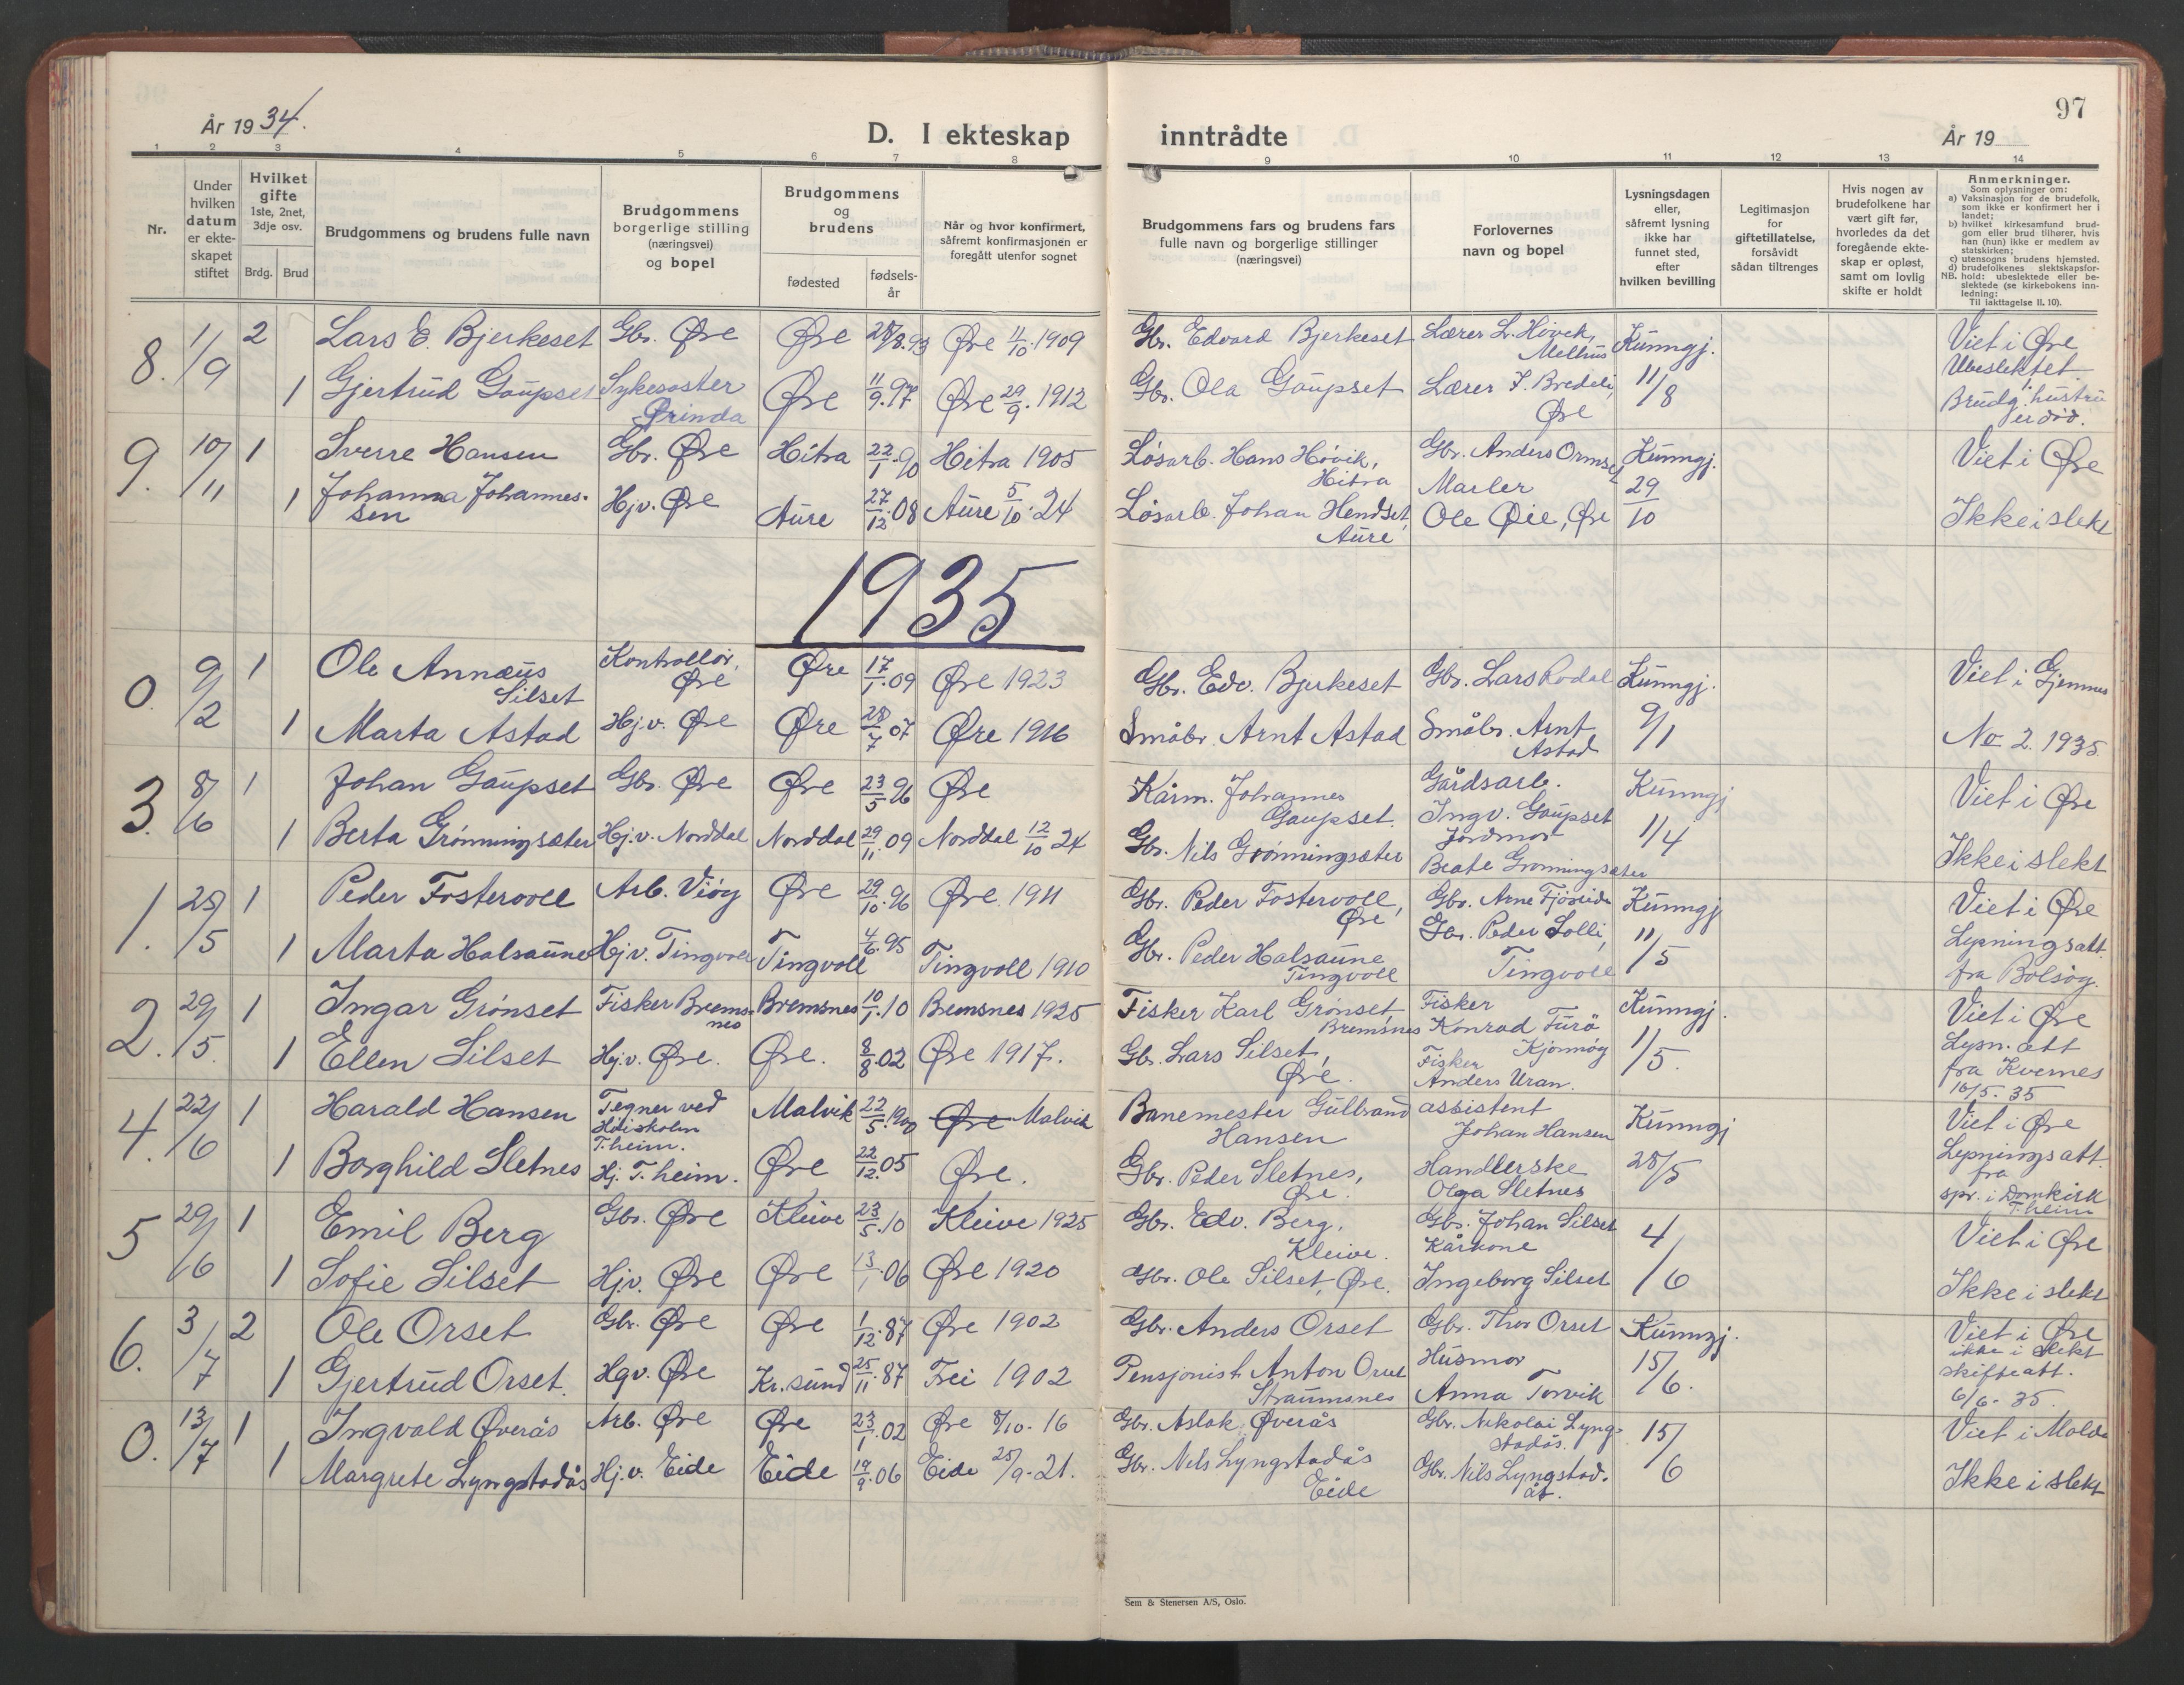 År 1934.
D. I ekteskap inntrådte
97
År 19
1 2 3 4 5 6 7 8 9 10 11 12 13 14
Nr.
Under hvilken datum er ekte-skapet stiftet
Hvilket gifte 1ste, 2net, 3dje osv.
Brdg. Brud
Brudgommens og brudens fulle navn
Brudgommens borgerlige stilling (næringsvei) og bopel
Brudgommens og brudens
fødested
fødsels-år
Når og hvor konfirmert, såfremt konfirmasjonen er foregått utenfor sognet
Brudgommens fars og brudens fars fulle navn og borgerlige stillinger (næringsvei)
Forlovernes navn og bopel
Lysningsdagen eller, såfremt lysning ikke har funnet sted, efter hvilken bevilling
Legitimasjon for giftetillatelse, forsåvidt sådan tiltrenges
Hvis nogen av brudefolkene har vært gift før, hvorledes da det foregående ekte-skap er opløst, samt om lovlig skifte er holdt
Anmerkninger.
Som oplysninger om:
a) Vaksinasjon for de brudefolk, som ikke er konfirmert her i landet;
b) hvilket kirkesamfund brud-gom eller brud tilhører, hvis han (hun) ikke er medlem av statskirken;
c) utensogns brudens hjemsted.
d) brudefolkenes slektskapsfor-hold: ubeslektede eller be-slektede (se kirkebokens inn-ledning:
NB.
Til iakttagelse II. 10).
8. 11/9 2 Lars E. Bjerkeset Gbr. Øre Øre 28/8.93 Øre 11/10.1909 Gbr. Edvard Bjerkeset Lærer L. Hövek, Melhus Kunngj. Viet i Øre
Ubeslektet
1 Gjertrud Gaupset Sykesøster Ørinda Øre 11/9.97 Øre 29/9.1912 Gbr. Ola Gaupset Lærer J. Bredeli, Øre 11/8 Brudg. hustru er död.
9. 10/11 1 Sverre Hansen Gbr. Øre Hitra 22/1.90 Hitra 1905 Løsarb. Hans Hövik, Hitra Gbr. Anders Ormset Kunngj. Viet i Øre
1 Johanna Johannes-sen Hjv. Øre Aure 27/12.08 Aure 5/10.24 Løsarb. Johan Hendset, Aure Maler Ole Øie, Øre 29/10 Ikke i slekt
1935
0. 9/2 1 Ole Annæus Silset Kontrollör, Øre Øre 17/1.09 Øre 1923 Gbr. Edv. Bjerkeset Gbr. Lars Rodal Kunngj. Viet i Gjemnes
1 Marta Astad Hj.v. Øre Øre 28/7 07 Øre 1916 Småbr. Arnt Astad Småbr. Arnt Astad 9/1 No 2. 1935
3. 8/6 1 Johan Gaupset Gbr. Øre Øre 23/5 96 Øre Kårm. Johannes Gaupset. Gårdsarb. Ingv. Gaupset Kunngj Viet i Øre
1 Berta Grönningsæter Hj.v. Norddal Norddal 29/11 09 Norddal 12/10 24 Gbr. Nils Grönningsæter Jordmor Beate Grönningsæter 1/4 Ikke i slekt
1. 25/5 1 Peder Fostervoll Arb. Viög Øre 29/10.96 Øre 1911 Gbr. Peder Fostervoll, Øre Gbr. Arne Fjöseide Kunngj Viet i Øre
1 Marta Halsaune Hjv. Tingvoll Tingvoll 4/6.95 Tingvoll 1910 Gbr. Peder Halsaune Tingvoll Gbr. Peder Solli, Tingvoll 11/5 Lysningsatt. fra Bolsöy.
2. 29/5. 1 Ingar Grönset Fisker Brems-nes Bremsnes 10/1.10 Bremsnes 1925 Fisker Karl Grönset Bremsnes Fisker Konrad Turö Kunngj. Viet i Øre
1 Ellen Silset Hj.v. Øre. Øre. 8/8.02 Øre 1917. Gbr. Lars Silset, Øre. Fisker Anders Uran. 1/5. Lysn. att fra Kvernes 16/5.35
4. 22/6 1 Harald Hansen Tegner ved Höiskolen T.heim. Malvik 22/5.1900 Øre Malvik Banemester Gulbrand Hansen assistent Johan Hansen Kunngj Viet i Øre
1 Borghild Sletnes Hj. T.heim. Øre 22/12.05 Øre. Gbr. Peder Sletnes, Øre. Handlerske Olga Sletnes 28/5 Lysningsatt. fra spr. i Domkirk T.heim
5 29/6 1 Emil Berg Gbr. Øre Kleive 23/5.10 Kleive 1925 Gbr. Edv. Berg, Kleive. Gbr. Johan Silset 4/6 Viet i Øre
1 Sofie Silset Hjv. Øre Øre 13/1.06 Øre 1920 Gbr. Ole Silset, Øre. Kårkone Ingeborg Silset Ikke i slekt
6. 3/7 2 Ole Orset Gbr. Øre Øre 1/12.87 Øre 1902 Gbr. Anders Orset Gbr. Thor Orset Kunngj. Viet i Øre
ikke i slekt
1 Gjertrud Orset. Hgv. Øre Kr.sund 25/11.87 Frei 1902 Pensjonist Anton Orset Straumsnes Husmor Anna Torvik 15/6. skifteatt. 6/6-35.
0. 13/7 1 Ingvald Øverås Arb. Øre Øre 23/1.02 Øre 8/10-16 Gbr. Aslak Øverås Gbr. Nikolai Lyng-stadås. 15/6 Viet i Molde
1 Margrete Lyngstadås Hj.v. Eide Eide 19/9.06 Eide 25/9-21. Gbr. Nils Lyngstadås Eide Gbr. Nils Lyngstad-ås. Ikke i slekt
Sem & Stenersen A/S, Oslo.